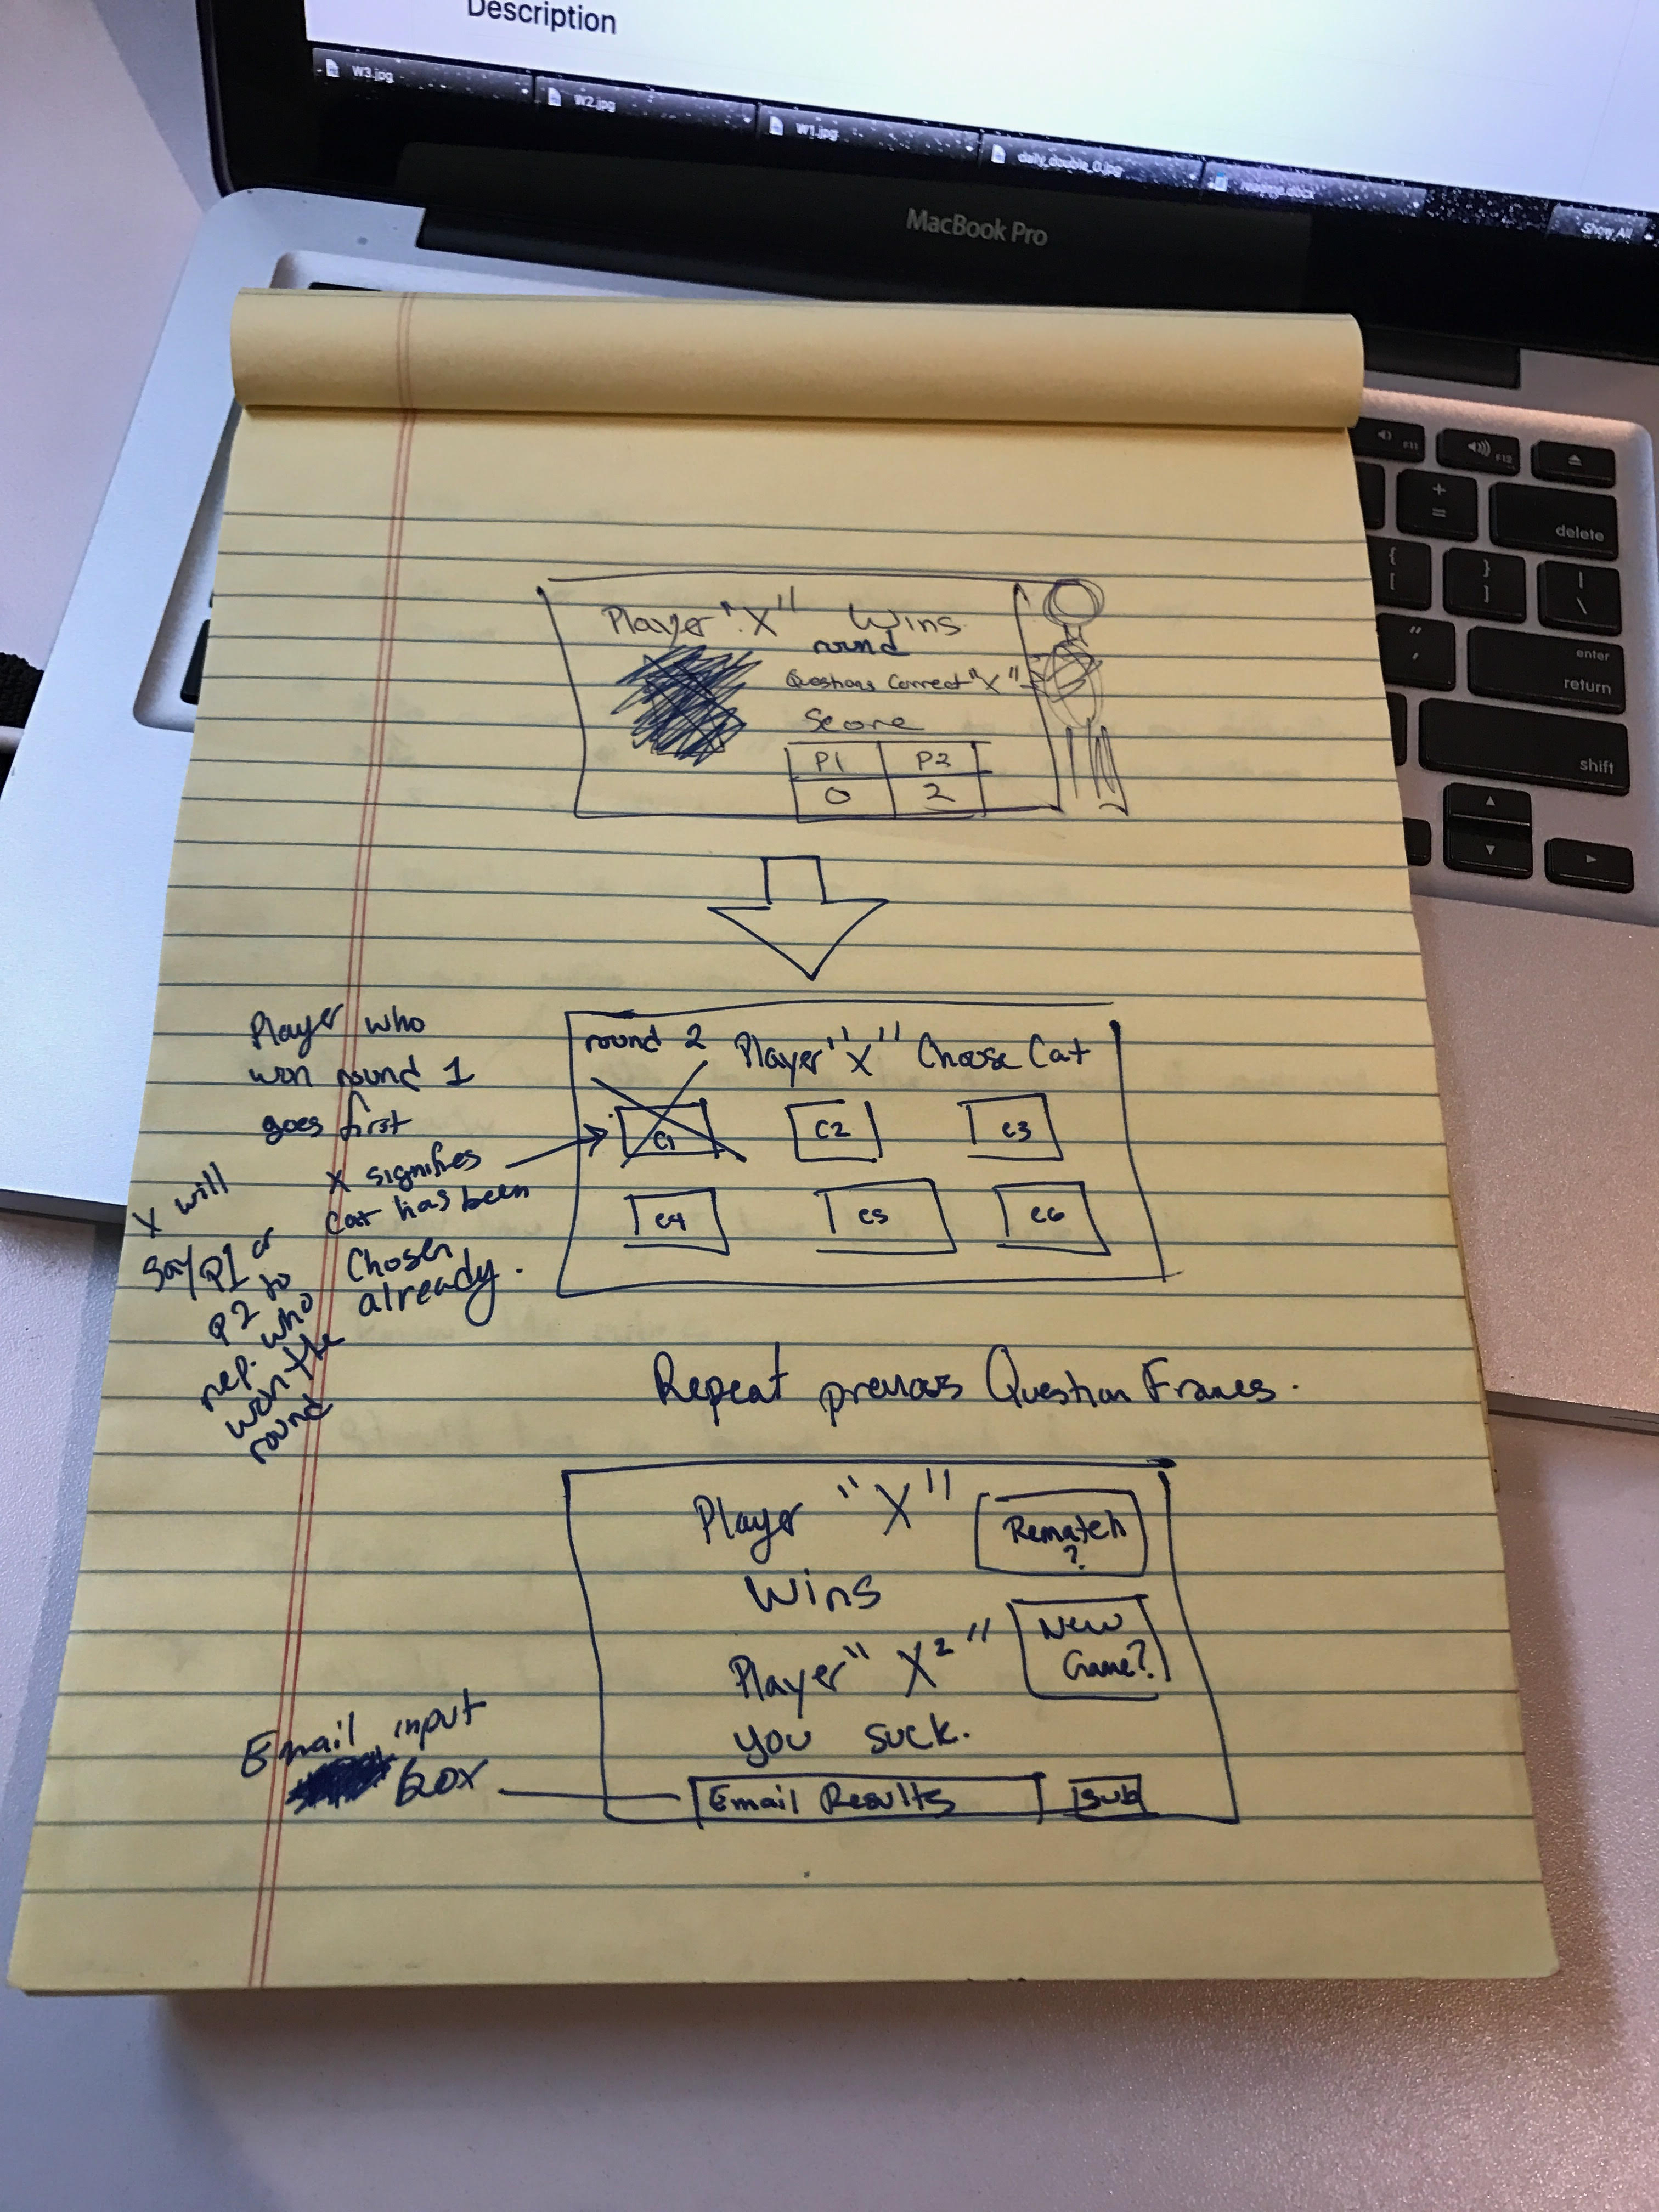 Description
W3.jpg
W2.jpg
W1.jpg
daily_double_0.jpg
readme.docx
Show All
MacBook Pro
F11
F12
+
=
delete
{
[
}
]
|
\
"
,
enter
return
shift
Player "X" Wins
round
Questions Correct "X"
Score
P1 P2
0 2
Player who
won round 1
goes first
X signifies
cat has been
chosen
already.
X will
say P1 or
P2 to
rep. who
won the
round
round 2 Player "X" Choose Cat
C1 C2 C3
C4 C5 C6
Repeat previous Question Frames.
Player "X"
Wins
Rematch
?
Player "X²"
you suck.
New
Game?
Email input
box
Email Results
Sub